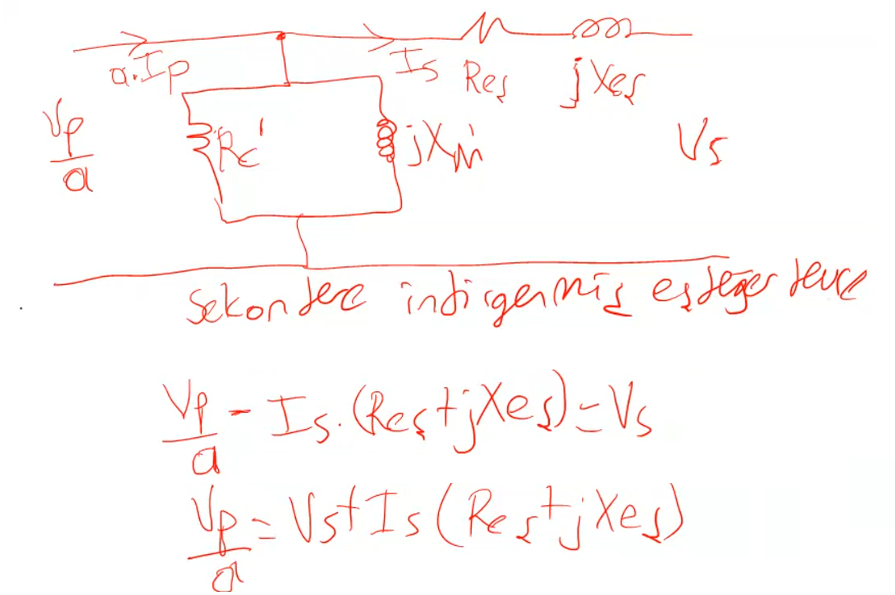 a.Ip Is Res jXes
Vp/a Rc' jXm' Vs
Sekondere indirgenmiş eşdeğer devre
Vp/a - Is.(Res+jXes)=Vs
Vp/a = Vs+Is(Res+jXes)